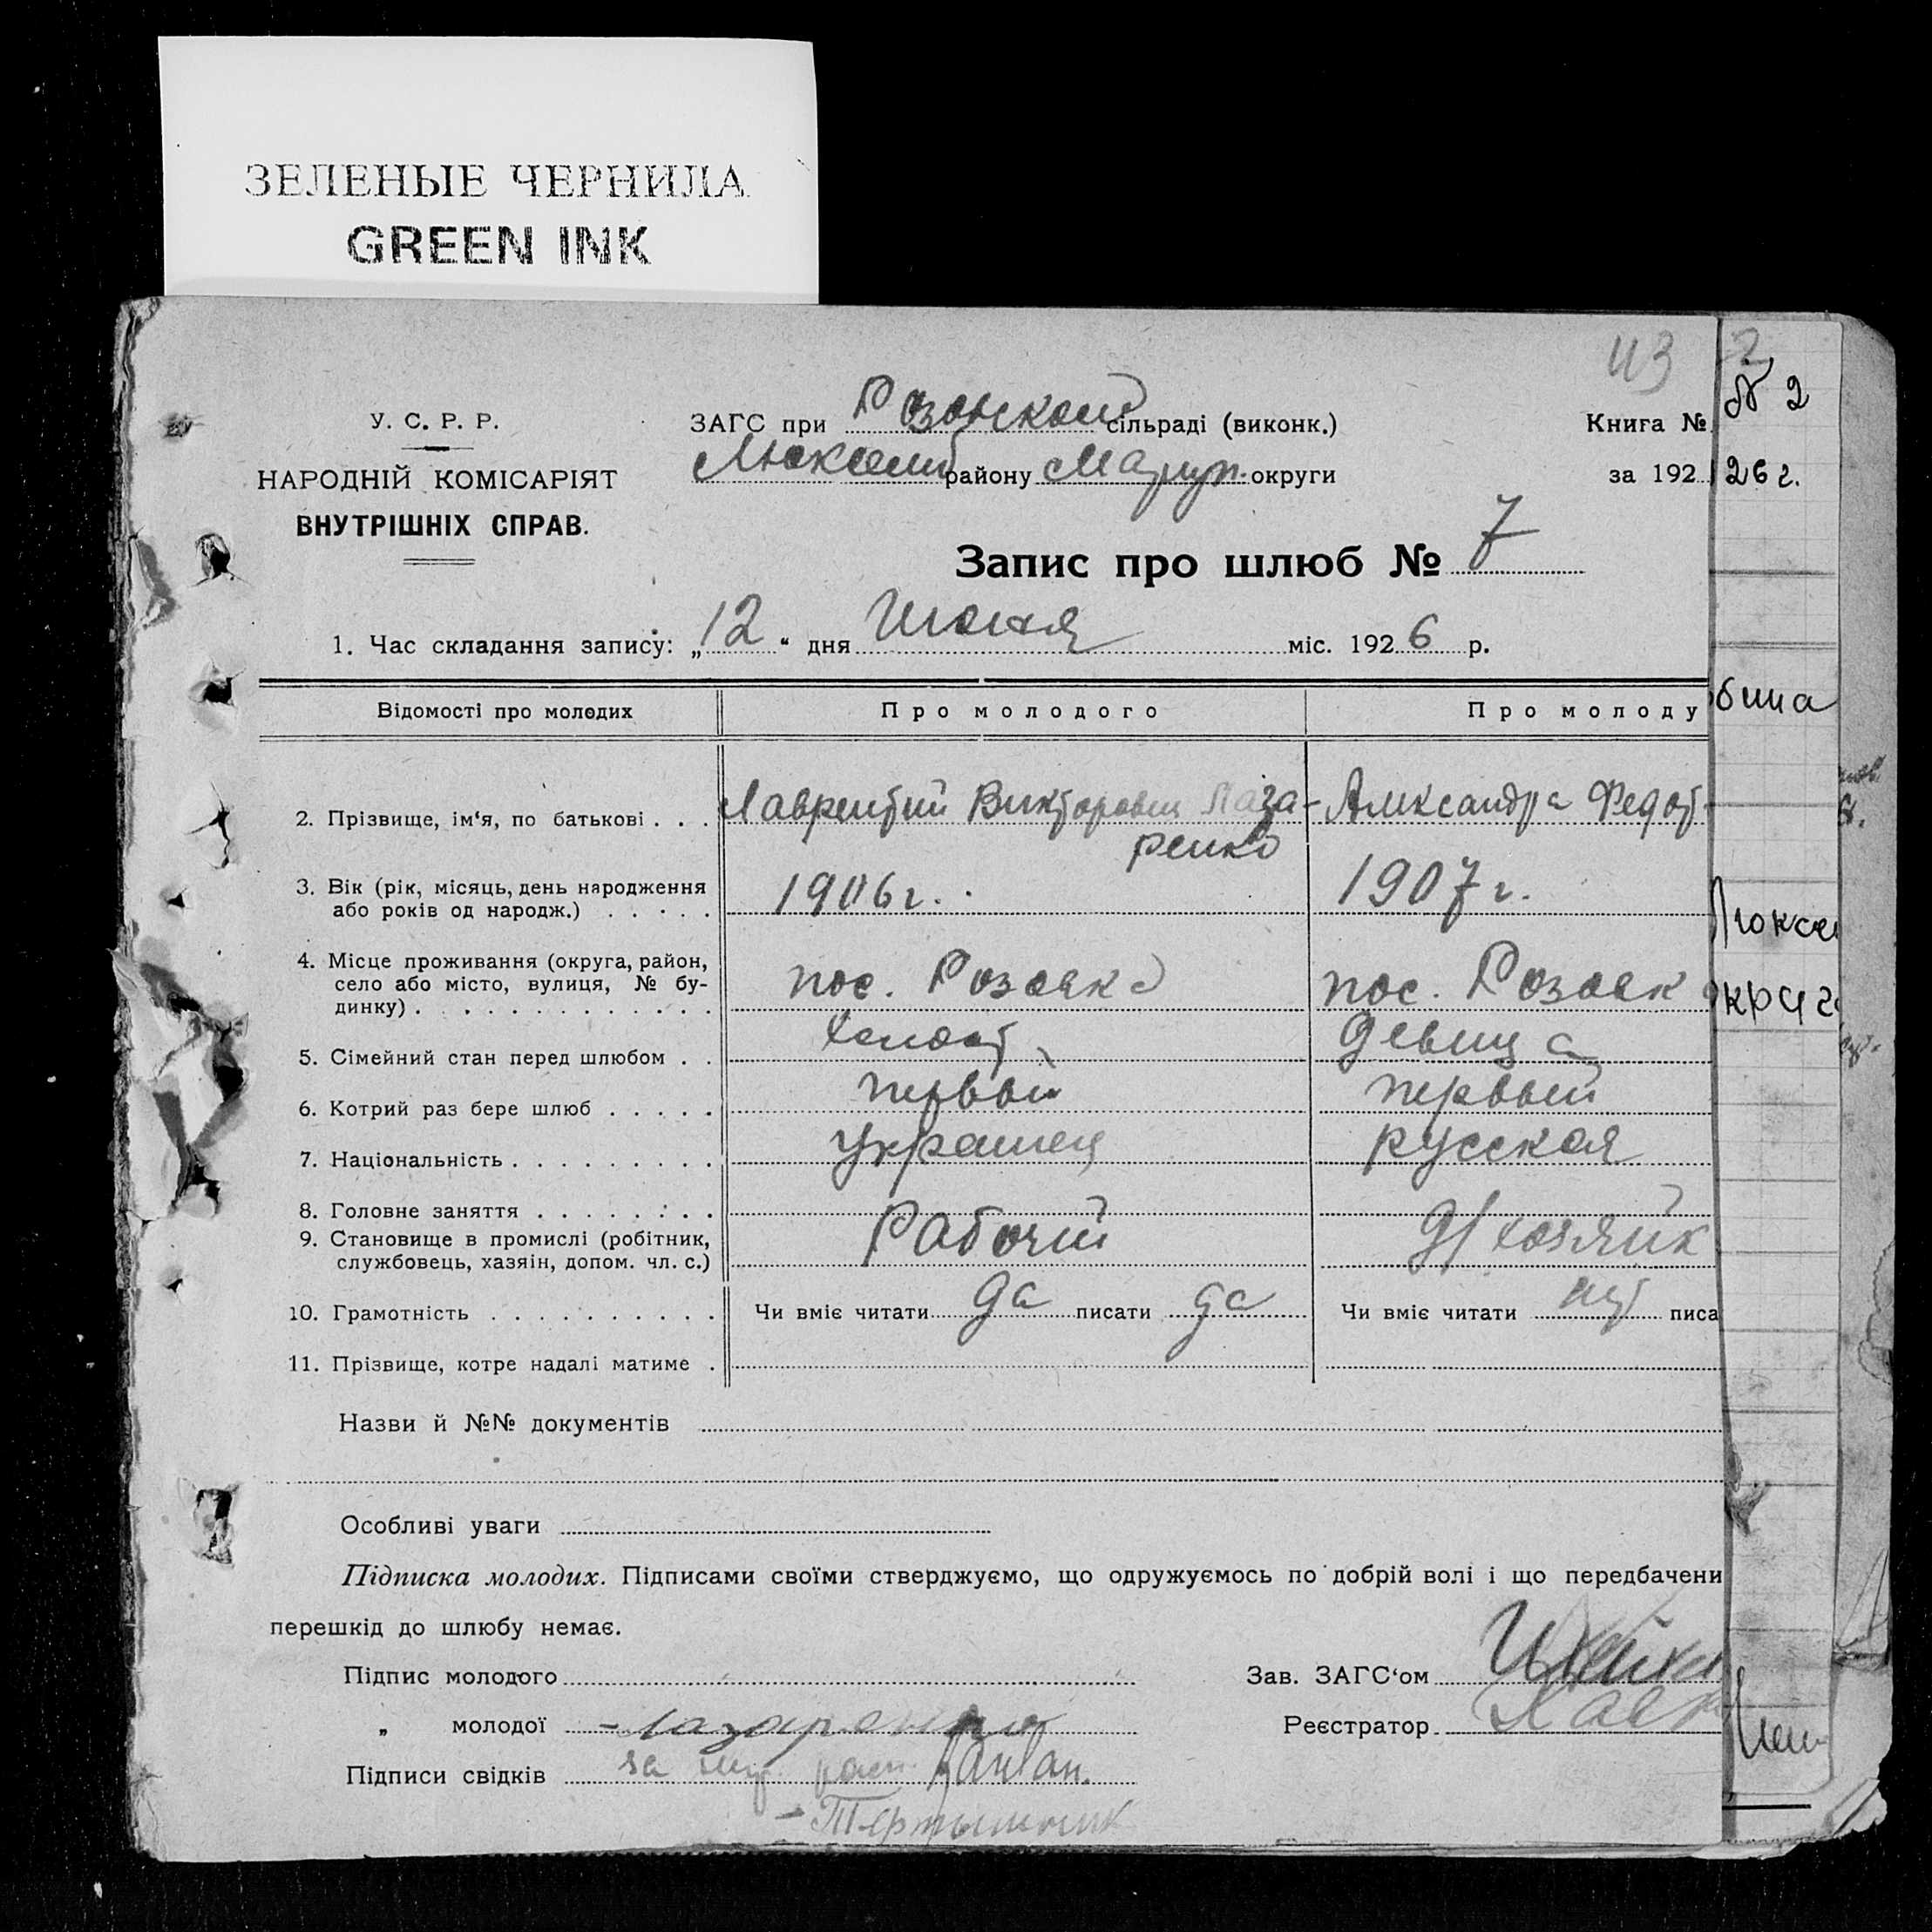 ЗЕЛЕНЫЕ ЧЕРНИЛА
GREEN INK
43
У. С. Р. Р.
НАРОДНІЙ КОМІСАРІЯТ
ВНУТРІШНІХ СПРАВ.
ЗАГС при Розовской сільраді (виконк.)
Люксемб району Мариуп. округи
Книга № № 2
за 192 26 г.
Запис про шлюб № 7
1. Час складання запису: „12“ дня Июня міс. 1926 р.
Відомості про молодих Про молодого Про молоду
2. Прізвище, ім‘я, по батькові . . . Лаврентий Викторович Лаза- Александра Федот-
ренко
3. Вік (рік, місяць, день народження
або років од народж.) . . . . . 1906 г. 1907 г.
4. Місце проживання (округа, район,
село або місто, вулиця, № бу-
динку) . . . . . . . . . . . . пос. Розовка пос. Розовк
5. Сімейний стан перед шлюбом . . холост девица
6. Котрий раз бере шлюб . . . . . первый первый
7. Національність . . . . . . . . . украинец русская
8. Головне заняття . . . . . . . .
9. Становище в промислі (робітник,
службовець, хазяін, допом. чл. с.) Рабочий д/хозяйк
10. Грамотність . . . . . . . . . . Чи вміє читати да писати да Чи вміє читати нет писа
11. Прізвище, котре надалі матиме .
Назви й №№ документів
Особливі уваги
Підписка молодих. Підписами своїми стверджуємо, що одружуємось по добрій волі і що передбачени
перешкід до шлюбу немає.
Підпис молодого
Зав. ЗАГС‘ом
„ молодої Лазаренко
Реєстратор
Підписи свідків за
Тертышник